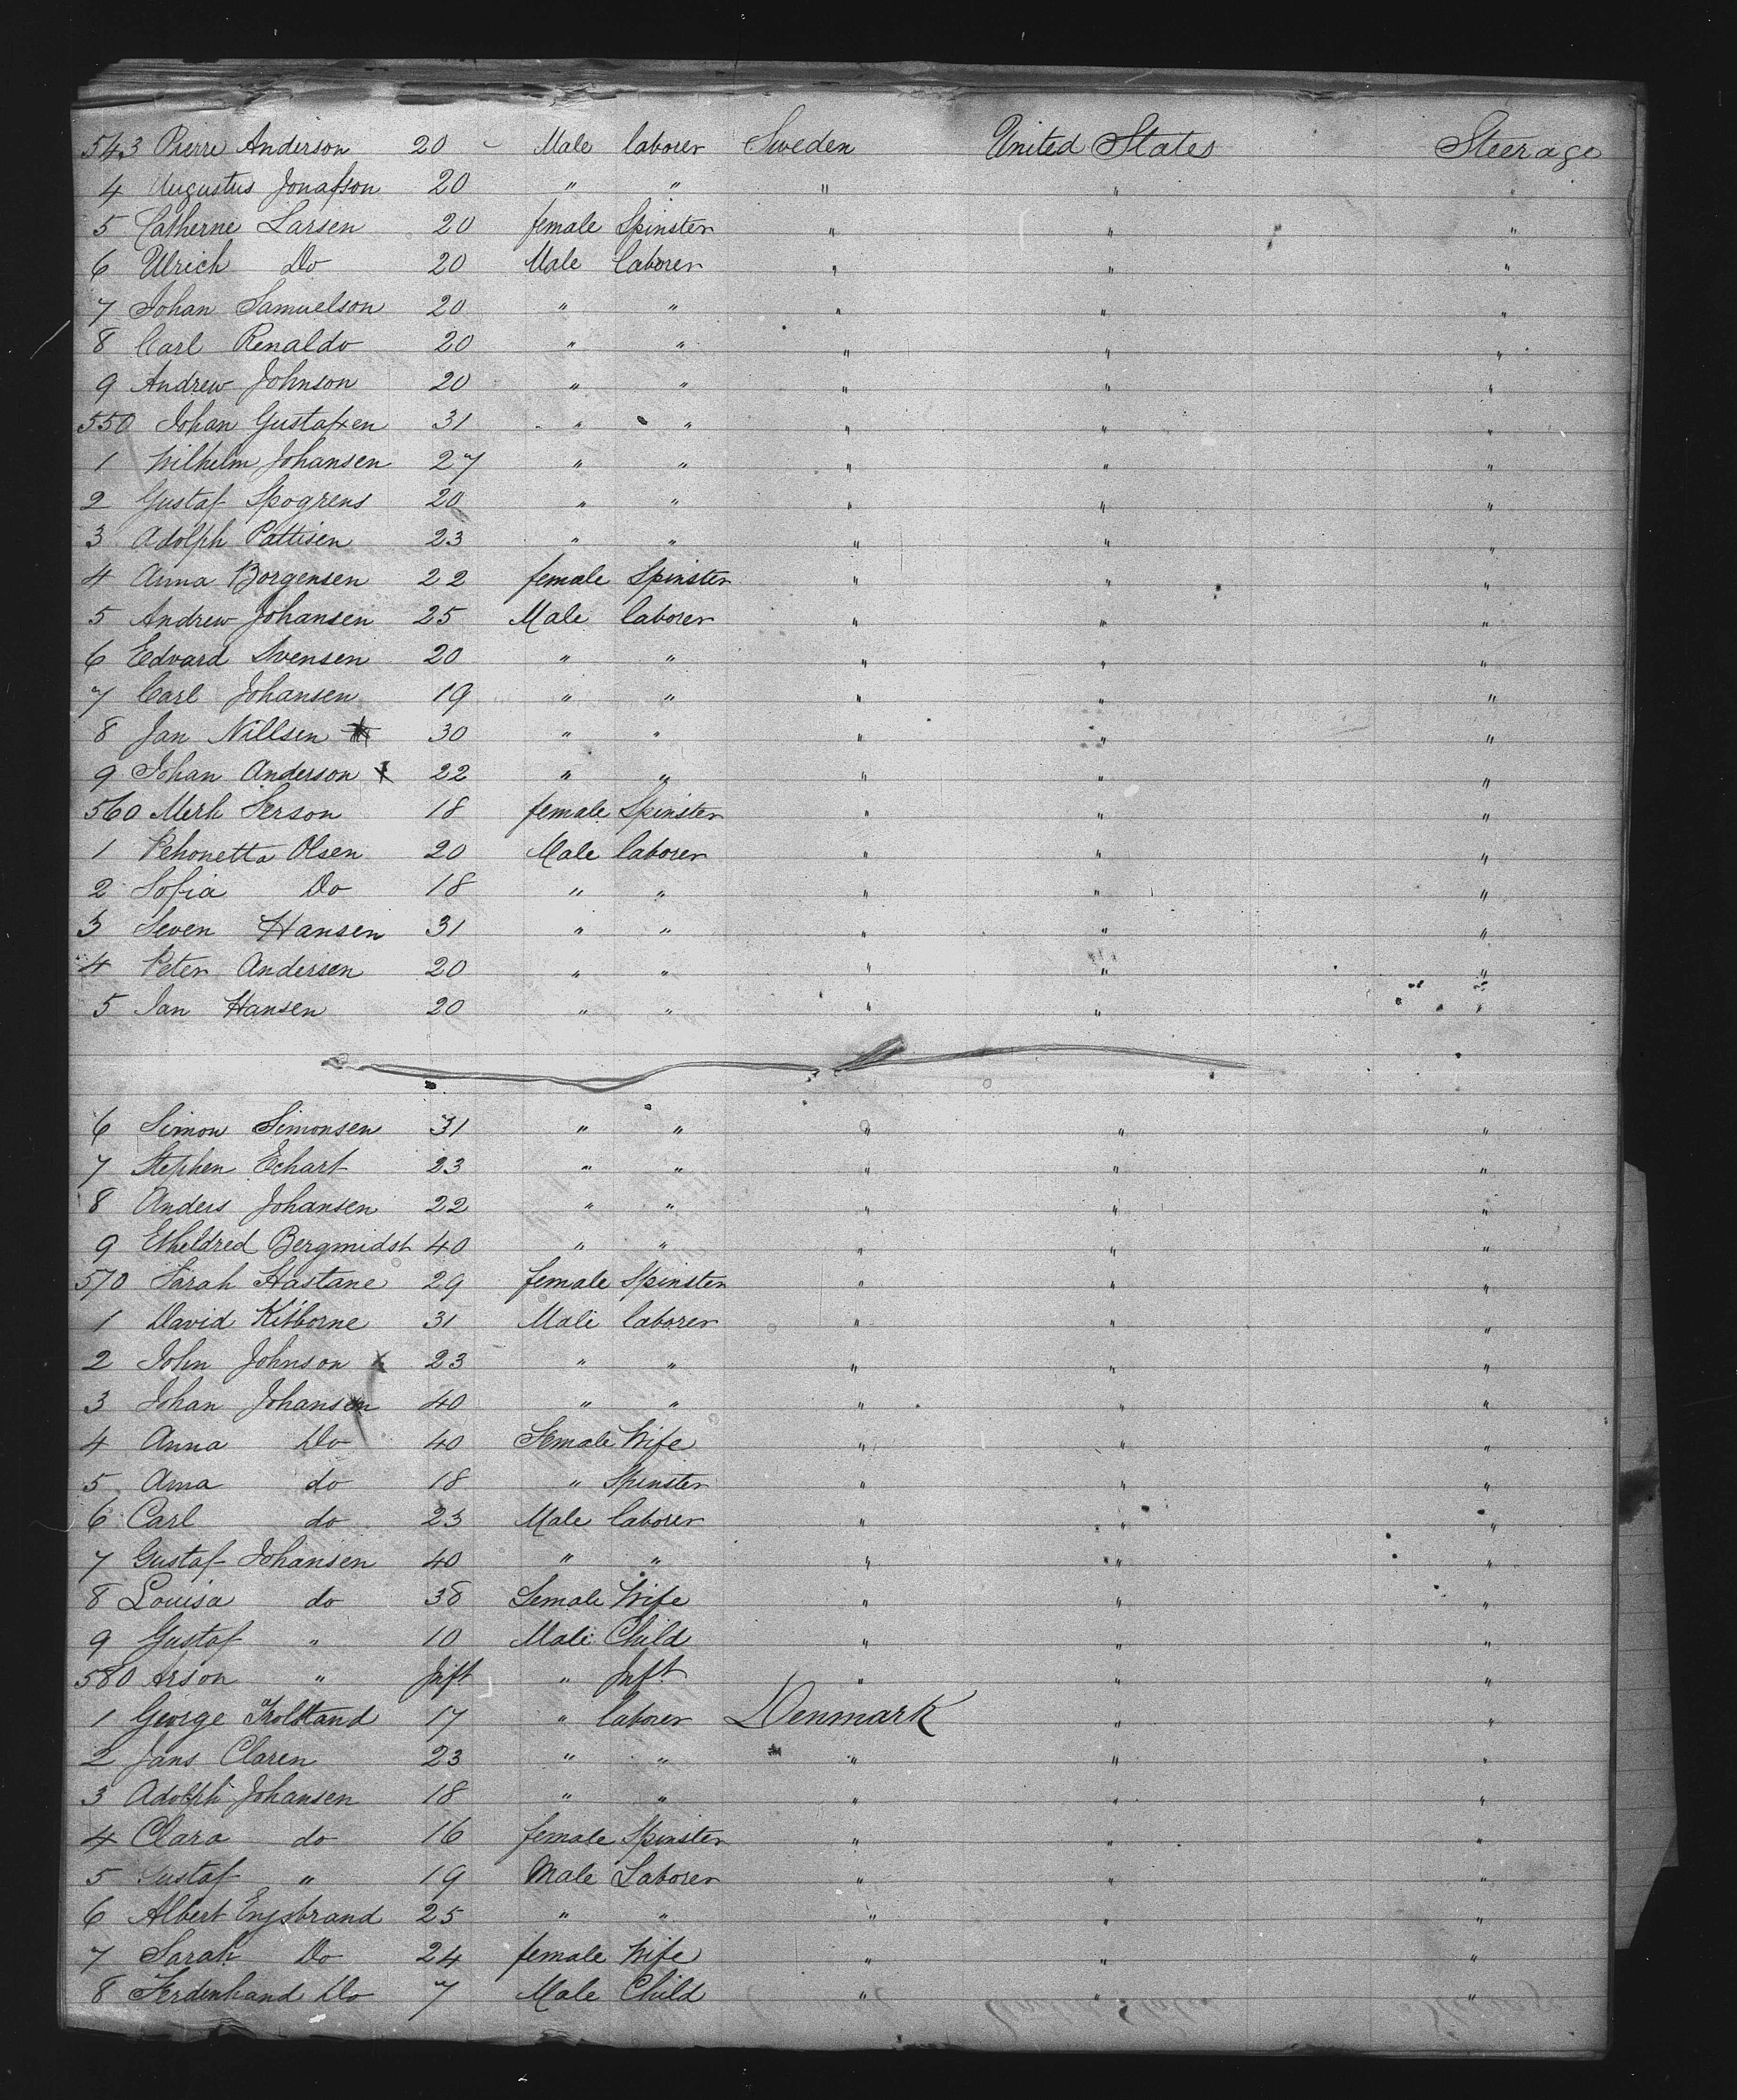 543 Pierre Anderson 20 - Male laborer Sweden United States Steerage
4 Augustus Jonasson 20 " " " " "
5 Catherne Larsen 20 female Spinster " " "
6 Ulrich Do 20 Male laborer " " "
7 Johan Samuelson 20 " " " " "
8 Carl Renaldo 20 " " " " "
9 Andrew Johnson 20 " " " " "
550 Johan Gustafxen 31 " " " " "
1 Wilhelm Johansen 27 " " " " "
2 Gustaf Spogrens 20 " " " " "
3 Adolph Pattisen 23 " " " " "
4 Anna Borgensen 22 female Spinster " " "
5 Andrew Johansen 25 Male laborer " " "
6 Edvard Svensen 20 " " " " "
7 Carl Johansen 19 " " " " "
8 Jan Nillsen 30 " " " " "
9 Johan Anderson x 22 " " " " "
560 Merh Serson 18 female Spinster " " "
1 Pehonetta Olsen 20 Male laborer " " "
2 Sofia Do 18 " " " " "
3 Seven Hansen 31 " " " " "
4 Peter Andersen 20 " " " " "
5 Jan Hansen 20 " " " " "
6 Simon Simonsen 31 " " " " "
7 Stephen Echart 23 " " " " "
8 Anders Johansen 22 " " " " "
9 Etheldred Bergmidst 40 " " " " "
570 Sarah Hastane 29 female Spinster " " "
1 David Kisborne 31 Male laborer " " "
2 John Johnson x 23 " " " " "
3 Johan Johansen 40 " " " " "
4 Anna Do 40 Female Wife " " "
5 Anna do 18 " Spinster " " "
6 Carl do 23 Male laborer " " "
7 Gustaf Johansen 40 " " " " "
8 Louisa do 38 Female Wife " " "
9 Gustaf " 10 Male Child " " "
580 Arson " Inft " Inft " " "
1 George Trolstand 17 " laborer Denmark " "
2 Jans Claren 23 " " " " "
3 Adolph Johansen 18 " " " " "
4 Clara do 16 female Spinster " " "
5 Gustaf " 19 Male Laborer " " "
6 Albert Engsbrand 25 " " " " "
7 Sarah Do 24 female Wife " " "
8 Ferdenhand Do 7 Male Child " " "